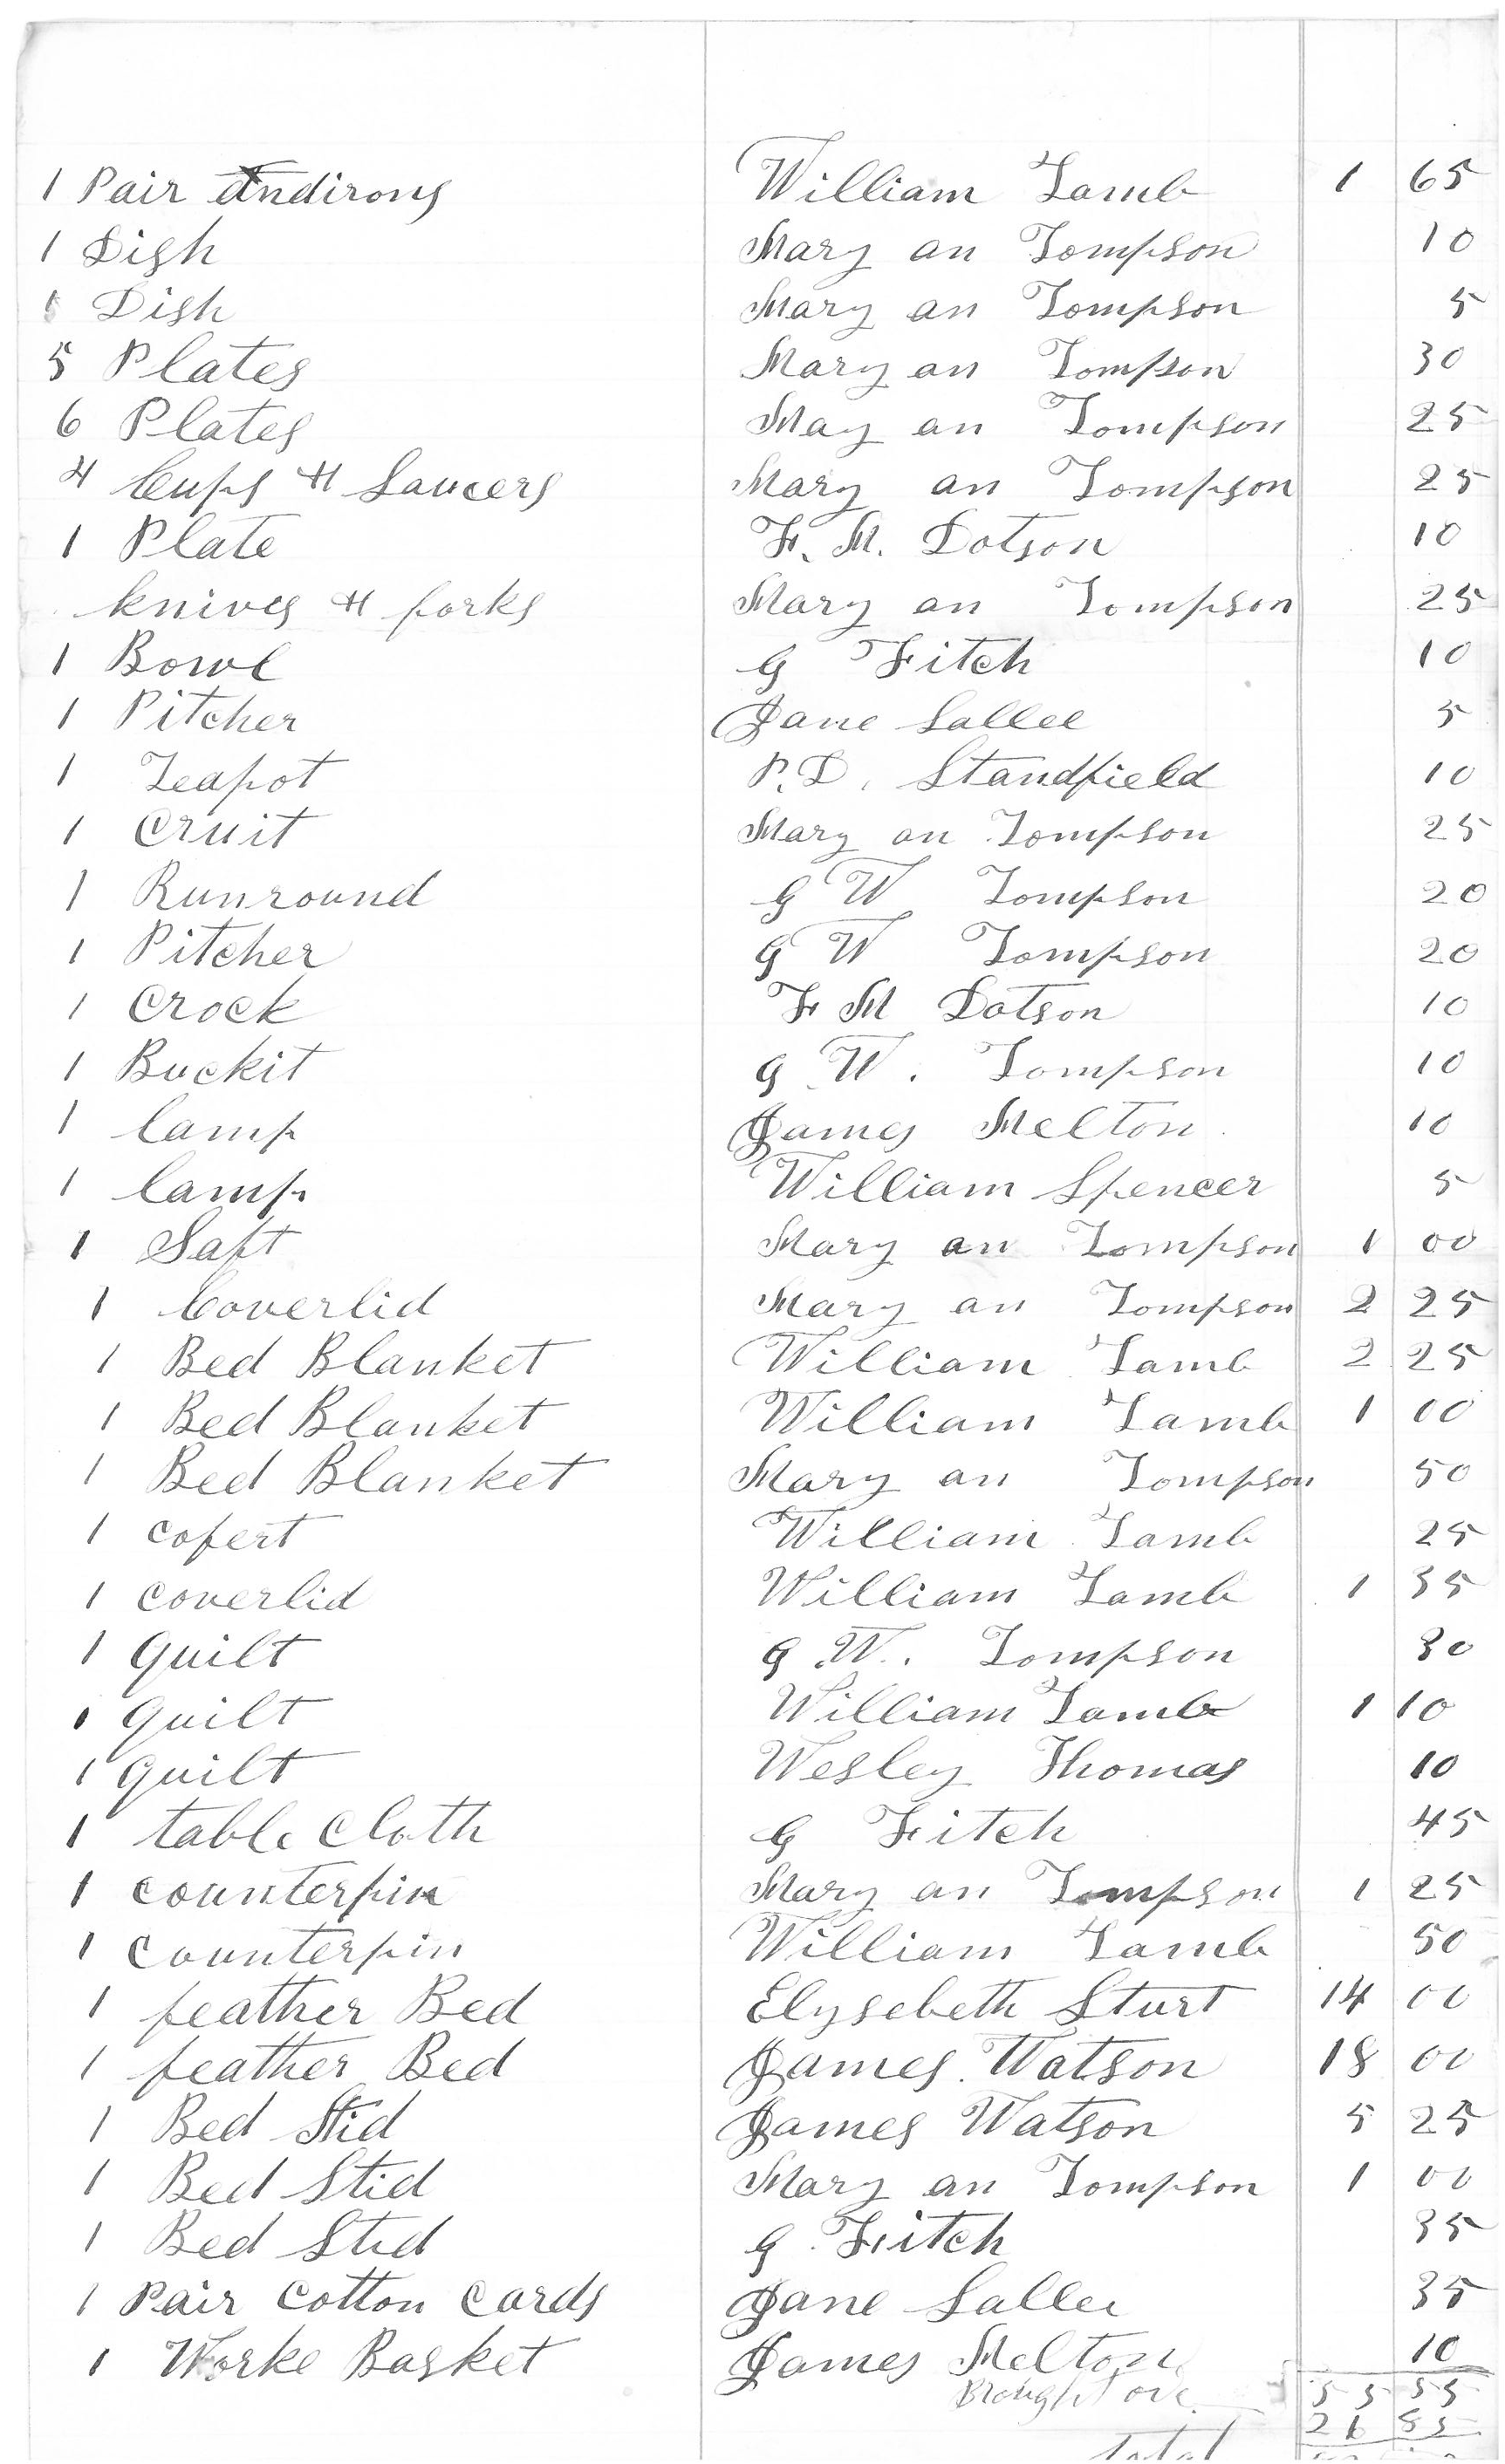 1 Pair Andirons William Lamb 1 65
1 Dish Mary an Tompson 10
1 Dish Mary an Tompson 5
5 Plates Mary an Tompson 30
6 Plates May an Tompson 25
4 Cups & Saucers Mary an Tompson 25
1 Plate F. M. Dotson 10
knives & forks Mary an Tompson 25
1 Bowl G Fitch 10
1 Pitcher Jane Sallee 5
1 Teapot P. D. Standfield 10
1 Cruit Mary an Tompson 25
1 Runround G W Tompson 20
1 Pitcher G W Tompson 20
1 Crock F M Dotson 10
1 Buckit G W. Tompson 10
1 lamp James Melton 10
1 lamp William Spencer 5
1 Saft Mary an Tompson 1 00
1 Coverlid Mary an Tompson 2 25
1 Bed Blanket William Lamb 2 25
1 Bed Blanket William Lamb 1 00
1 Bed Blanket Mary an Tompson 50
1 cofert William Lamb 25
1 coverlid William Lamb 1 35
1 Quilt G. W. Tompson 30
1 Quilt William Lamb 1 10
1 Quilt Wesley Thomas 10
1 table cloth G Fitch 45
1 counterpin Mary an Tompson 1 25
1 counterpin William Lamb 50
1 feather Bed Elysebeth Sturt 14 00
1 feather Bed James Watson 18 00
1 Bed Stid James Watson 5 25
1 Bed Stid Mary an Tompson 1 00
1 Bed Stid G Fitch 35
1 Pair Cotton Cards Jane Sallee 35
1 Worke Basket James Melton 10
55 55
Brought 26 85
total